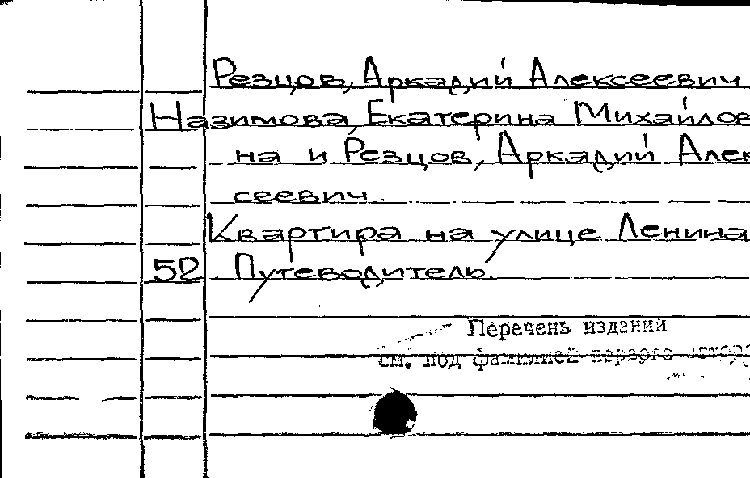 Резцов, Аркадий Алексеевич
Назимова, Екатерина Михайлов
на и Резцов, Аркадий Алек
сеевич.
Квартира на улице Ленина
52 Путеводитель.
Перечень изданий
см. под фамилией первого автора